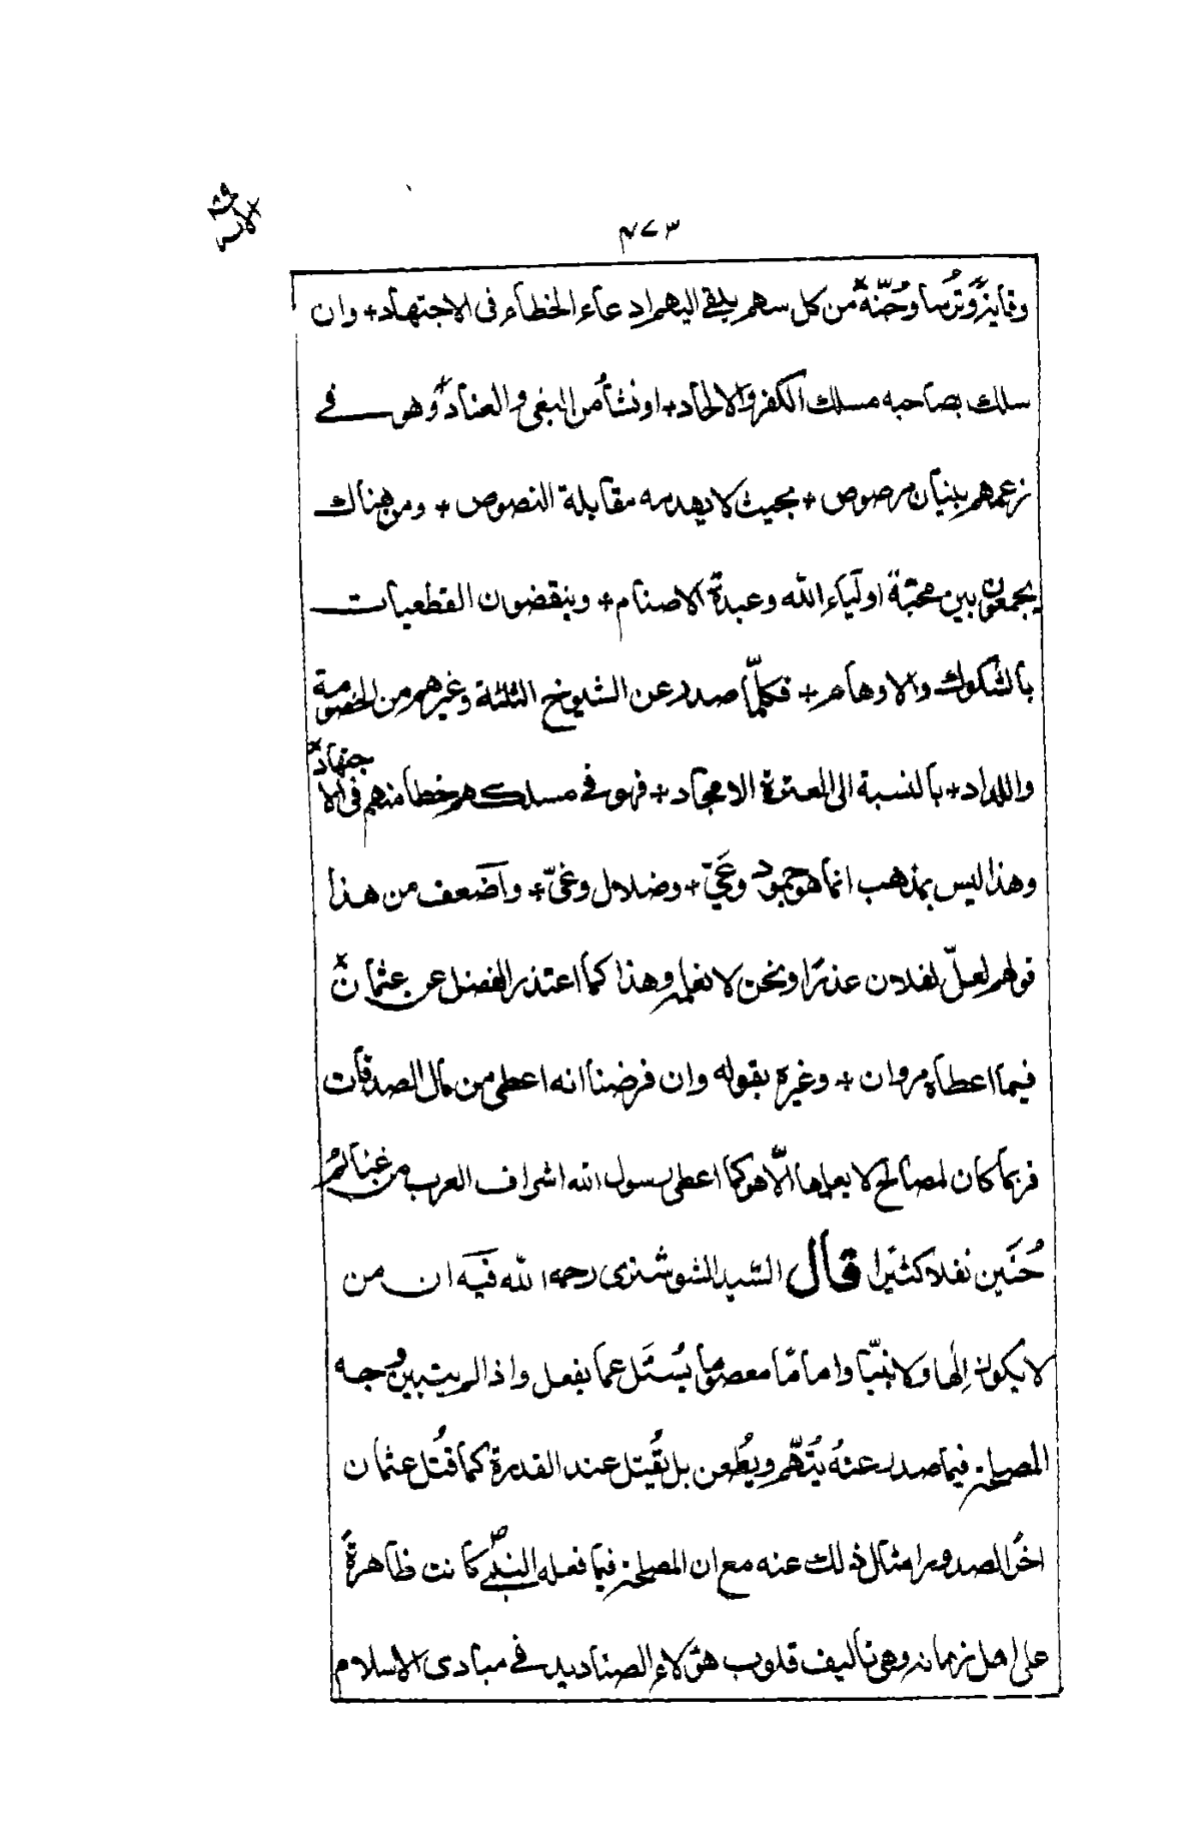 ۴۷۳
وقايةً وتُرسا وجُنّة من كل سهم يلقى اليهم ادعاء الخطاء فى الاجتهاد + وان
سلك بصاحبه مسلك الكفر والالحاد + او نشأ من البغى والعناد + وهو فے
زعمهم بنيان مرصوص + بحيث لا يهدمه مقابلة النصوص + ومن هناك
يجمعون بين محبّة اولياء الله وعبدة الاصنام + وينقضون القطعيات
بالشكوك والاوهام + فكلّما صدر عن الشيوخ الثلثة وغيرهم من الخصومة
واللداد + بالنسبة الى العترة الامجاد + فهو فى مسلكهم خطأ منهم فى الاجتهاد
وهذا ليس بمذهب انما هو جمود وعَيّ + وضلال وغىّ + واضعف من هذا
قولهم لعلّ لفلان عذرًا ونحن لا نعلمه وهذا كما اعتذر الفضل عن عثمان
فيما اعطاه مروان + وغيره بقوله وان فرضنا انه اعطى من مال الصدقات
فربما كان لمصالح لا يعلمها الّا هو كما اعطى رسول الله اشراف العرب من غنائم
حُنَين نفلا كثيرًا قال السّيد الشوشترى رحمه الله فيه ان من
لا يكون اِلٰها ولا نبيّا واماما معصوما يُسئَل عما يفعل واذا لم يتبين وجه
المصلحة فيما صدر عنهُ يُتَّهم ويُطعن بل يُقتل عند القدرة كما قُتل عثمان
اخر الصدور امثال ذلك عنه مع ان المصلحة فيما فعله النبىّ ص كانت ظاهرةً
على اهل زمانه وهى تاليف قلوب هؤلاء الصناديد فے مبادى الاسلام